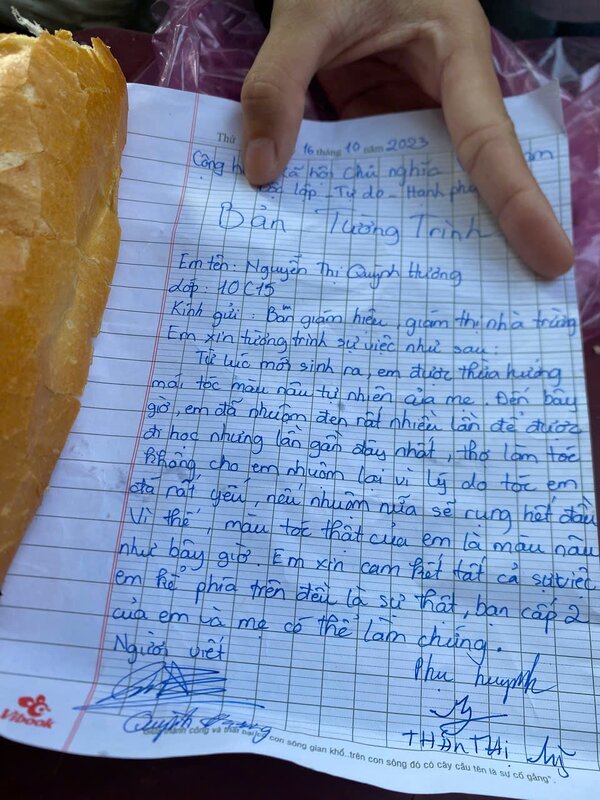 Thứ 16 tháng 10 năm 2023
Cộng xã hội Chủ nghĩa
lập - Tự do - Hạnh
Bản Tường Trình
Em tên: Nguyễn Thị Quỳnh Hương
Lớp: 10C15
Kính gửi: Ban giám hiệu, giám thị nhà trường
Em xin tường trình sự việc như sau:
Từ lúc mới sinh ra, em được thừa hưởng
mái tóc màu nâu tự nhiên của mẹ. Đến bây
giờ, em đã nhuộm đen rất nhiều lần để được
đi học nhưng lần gần đây nhất, thợ làm tóc
không cho em nhuộm lại vì lý do tóc em
đã rất yếu, nếu nhuộm nữa sẽ rụng hết đầu
Vì thế, màu tóc thật của em là màu nâu
như bây giờ. Em xin cam kết tất cả sự việc
em kể phía trên đều là sự thật, bạn cấp 2
của em và mẹ có thể làm chứng.
Người viết Phụ huynh
Quỳnh THÂN THỊ
Vibook công và thất bại con sông gian khổ..trên con sông đó có cây cầu tên là sự cố gắng".